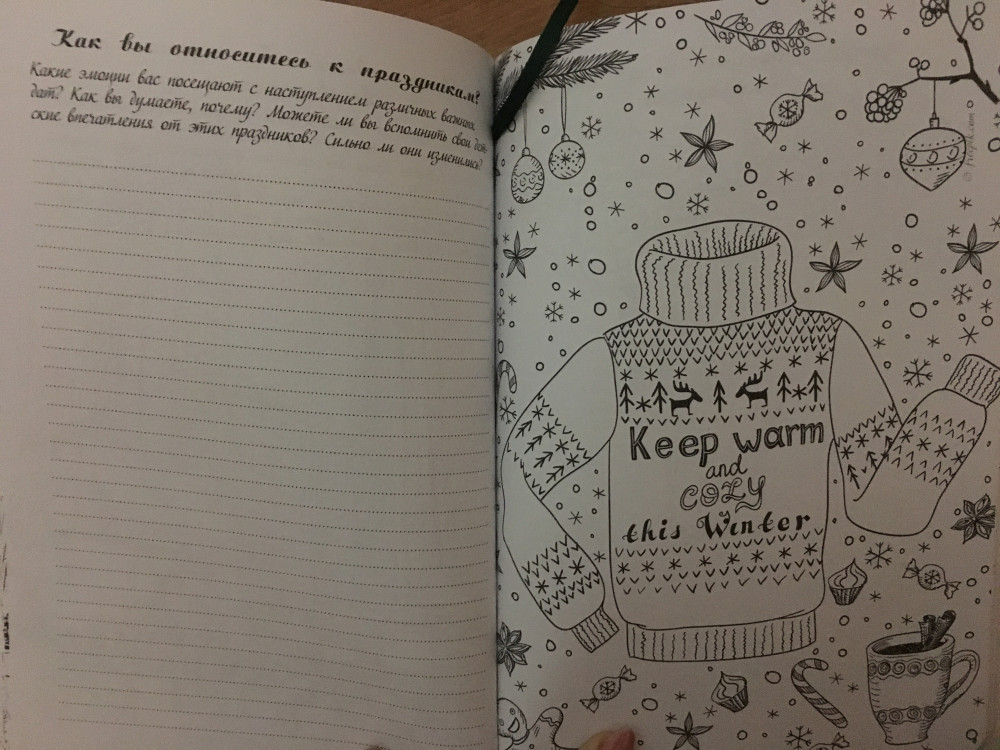 Как вы относитесь к праздникам?
Какие эмоции вас посещают с наступлением различных важных
дат? Как вы думаете, почему? Можете ли вы вспомнить свои дет-
ские впечатления от этих праздников? Сильно ли они изменились?
Keep warm
and
COZY
this Winter
© freepik.com